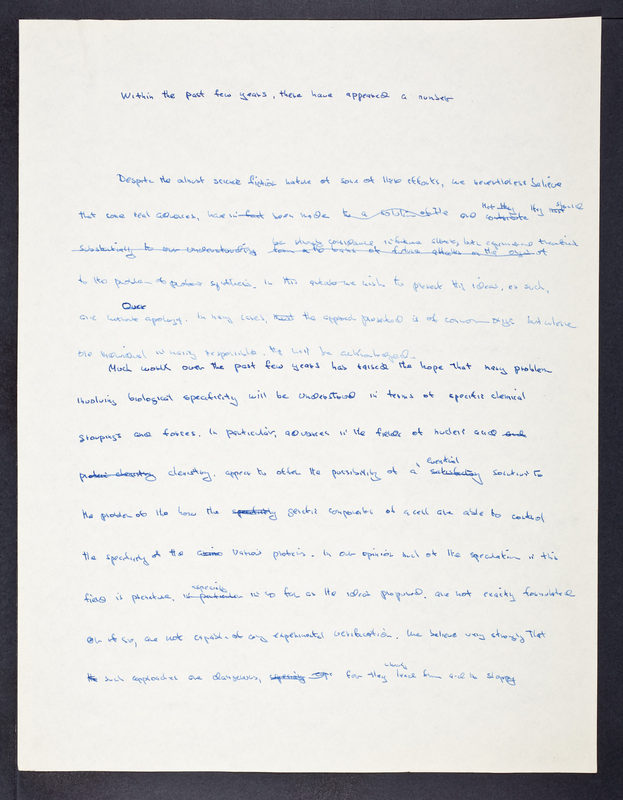 Within the past few years, there have appeared a number
Despite the almost science fiction nature of some of these efforts, we nevertheless believe
that some real advances, have in fact been made to a and that they they must should contribute
substantially to our understanding be in future efforts, form a basis of future attacks on the
to the problem of protein synthesis. In this article we wish to present the ideas, as such,
Over
are without apology. In many cases, that the approach presented is of common but where
the individual is responsible, he will be acknowledged.
Much work over the past few years has raised the hope that many problem
involving biological specificity will be understood in terms of specific chemical
groupings and forces. In particular, advances in the fields of nucleic acid and
essential
protein chemistry chemistry, appear to offer the possibility of a satisfactory solution to
the problem of the how the specificity genetic components of a cell are able to control
the specificity of the amino various proteins. In our opinion much of the speculation in this
especially
field is premature, in particular in so far as the ideas proposed, are not exactly formulated
or if so, are not capable of any experimental verification. We believe very strongly that
the such approaches are dangerous, especially for they lead from and to sloppy